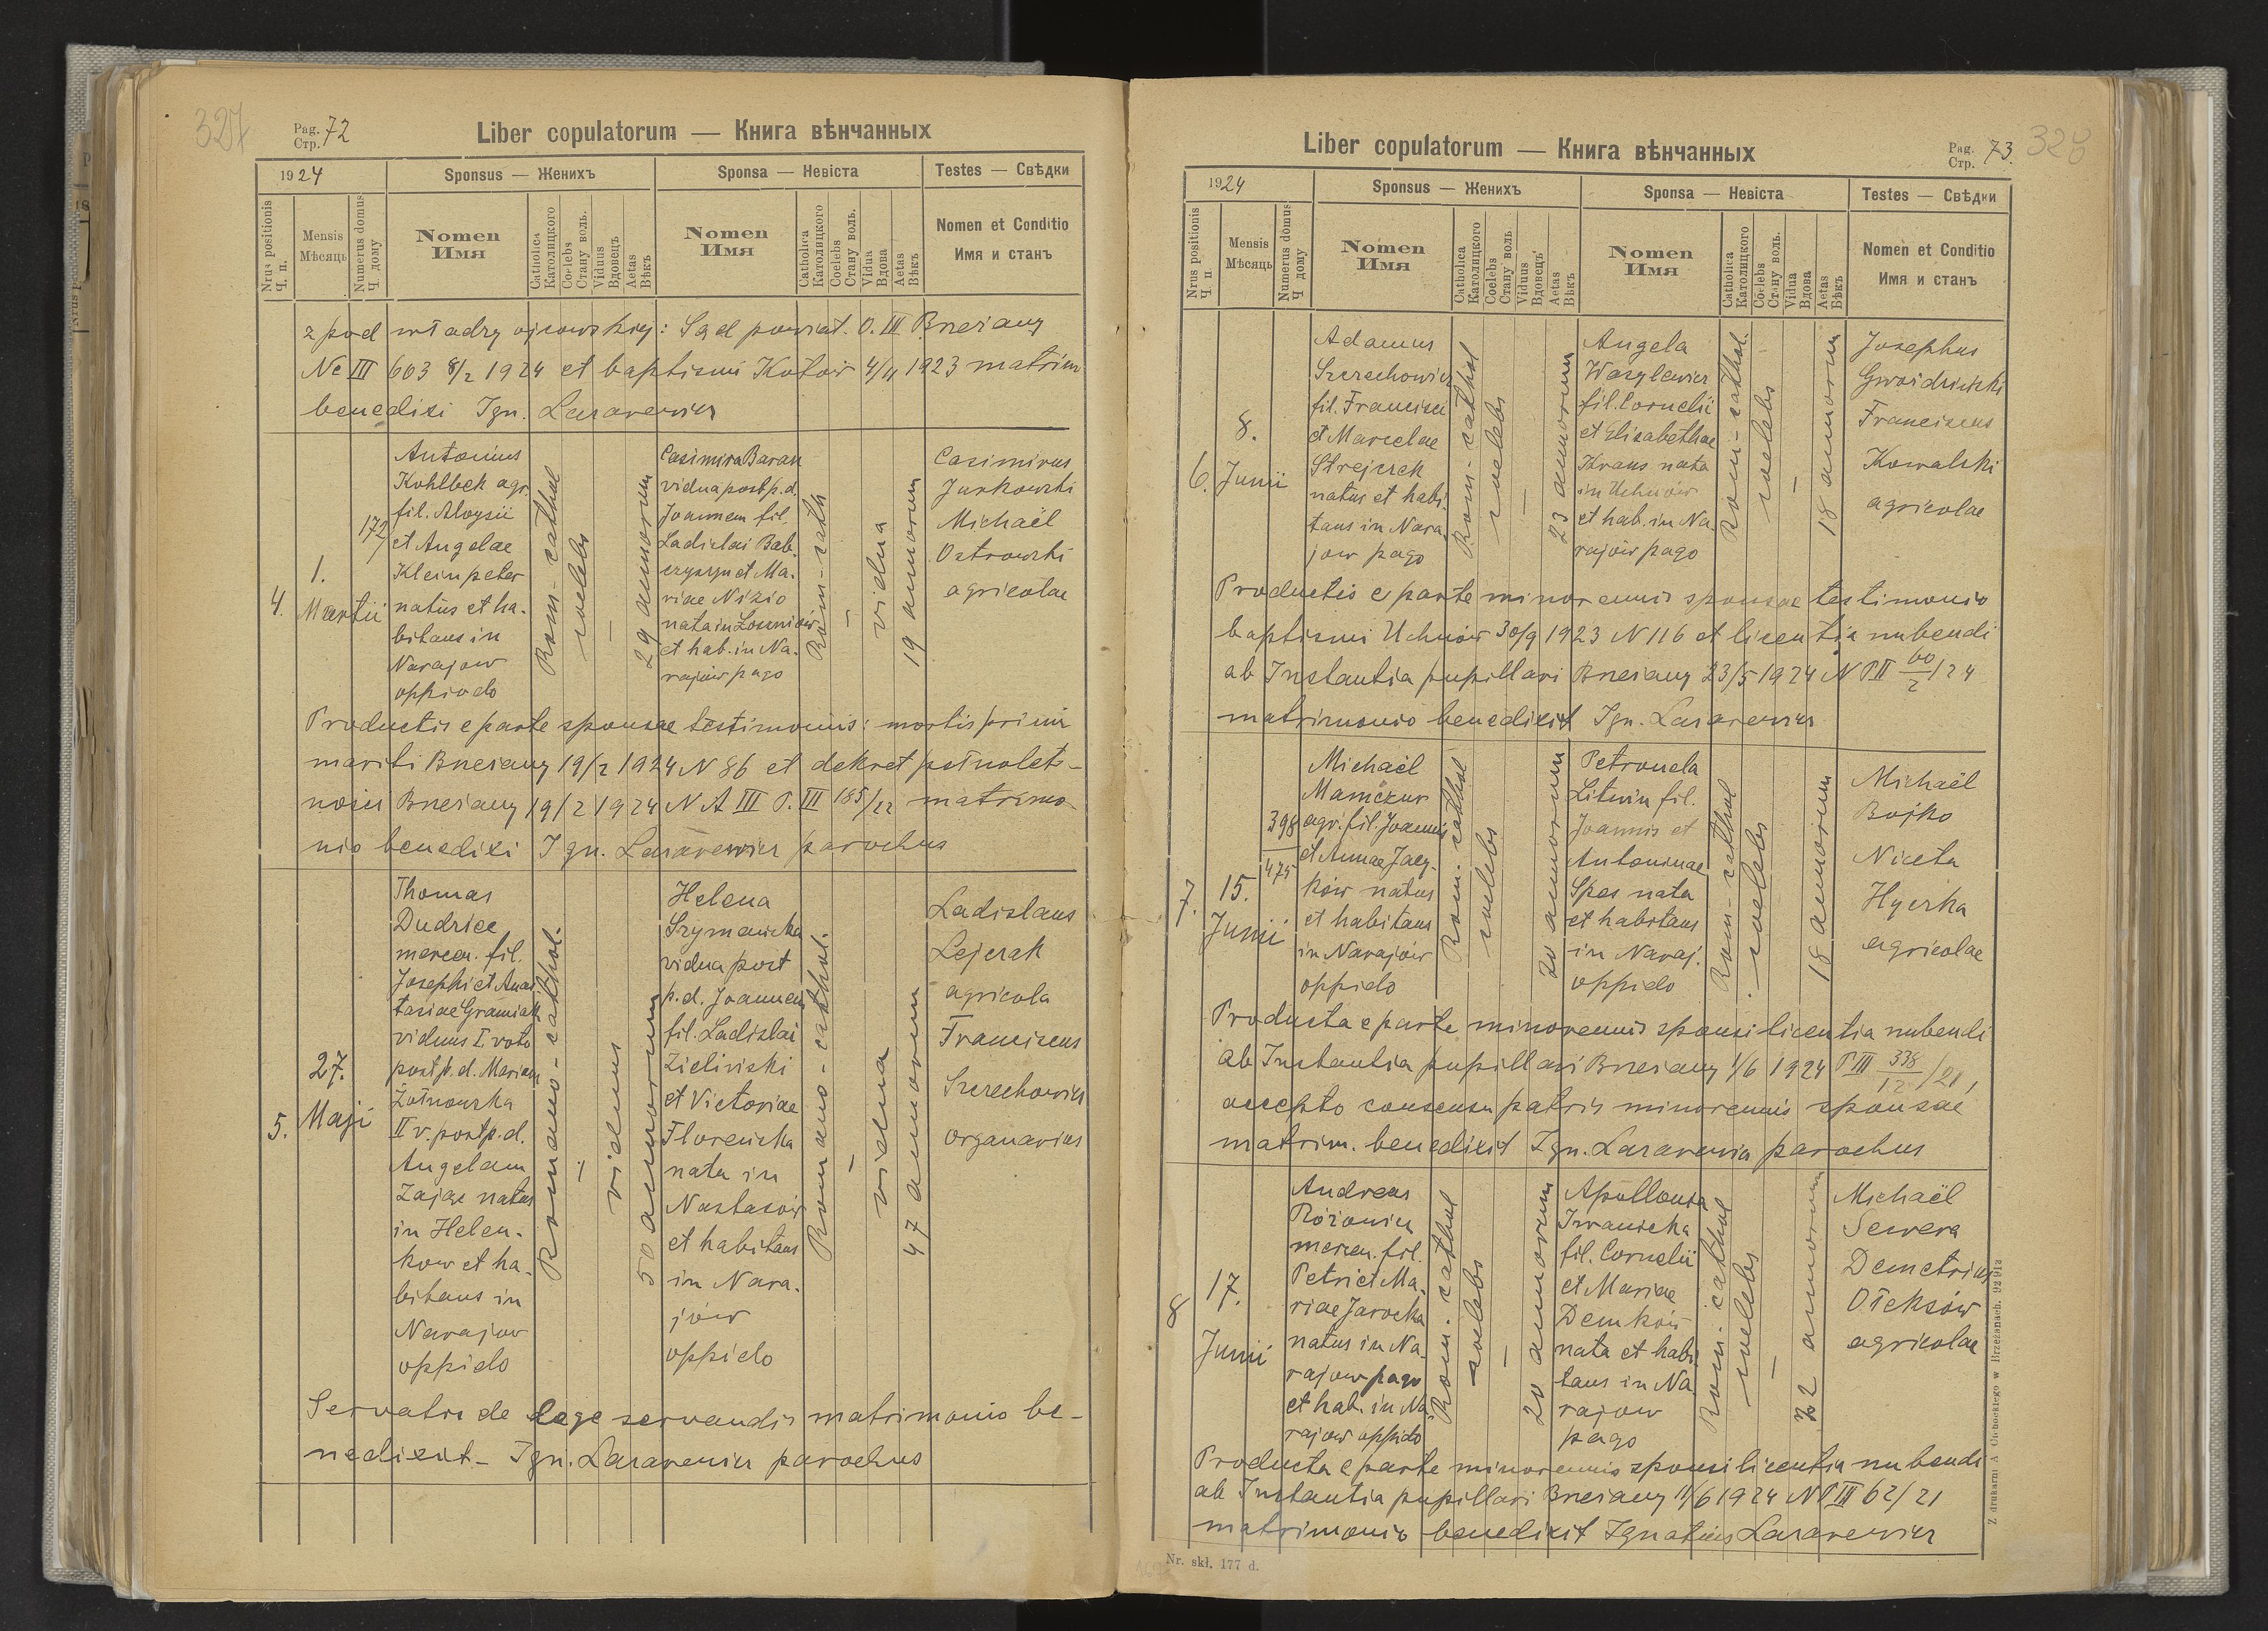 327
Pag.
Стр. 72
Liber copulatorum — Книга вѣнчанных
1924
Sponsus — Женихъ
Sponsa — Невіста
Testes — Свѣдки
Nrus positionis
Ч. п.
Mensis
Мѣсяць
Numerus domus
Ч. дому
Nomen
Имя
Catholica
Католицкого
Coelebs
Стану воль.
Viduus
Вдовецъ
Aetas
Вѣкъ
Nomen
Имя
Catholica
Католицкого
Coelebs
Стану воль.
Vidua
Вдова
Aetas
Вѣкъ
Nomen et Conditio
Имя и станъ
z pod władzy ojcowskiej: Sąd powiat. O. III Brzeżany
Nc III 603 8/2 1924 et baptismi Kotów 4/11 1923 matrim
benedixi Ign. Lazarewicz
4.
1.
Martii
172
Antonius
Kohlbek agr.
fil. Aloysii
et Angelae
Kleinpeter
natus et ha-
bitans in
Narajow
oppiodo
Rom-cathol
coelebs
—
29 annorum
Casimira Baran
vidua post p. d.
Joannem fil.
Ladislai Bab-
czyszyn et Ma-
riae Nizio
nata in Łozniów
et hab. in Na-
rajów pago
Rom-cath
—
vidua
19 annorum
Casimirus
Jurkowski
Michaël
Ostrowski
agricolae
Productis e parte sponsae testimoniis: mortis primi
mariti Brzeżany 19/2 1924 N 86 et dekret pełnolet-
ności Brzeżany 19/2 1924 N A III P. III 185/22 matrimo-
nio benedixi Ign. Lazarewicz parochus
5.
27.
Maji
Thomas
Dudrice
mercen. fil.
Josephi et Anas
tasiae Gramiak
viduus I. voto
post p. d. Mariam
Żółnowska
II v. post p. d.
Angelam
Zając natus
in Helen-
kow et ha-
bitans in
Narajow
oppido
Romano-cathol.
—
viduus
50 annorum
Helena
Szymańska
vidua post
p. d. Joannem
fil. Ladislai
Zieliński
et Victoriae
Floreńska
nata in
Nastasów
et habitans
in Nara-
jów
oppido
Romano-cathol.
—
vidua
47 annorum
Ladislaus
Lejczak
agricola
Franciscus
Szczechowicz
organarius
Servatis de lege servandis matrimonio be-
nedixit - Ign. Lazarewicz parochus
Liber copulatorum — Книга вѣнчанных
Pag.
Стр. 73.
328
1924
Sponsus — Женихъ
Sponsa — Невіста
Testes — Свѣдки
Nrus positionis
Ч. п
Mensis
Мѣсяць
Numerus domus
Ч дому
Nomen
Имя
Catholica
Католицкого
Coelebs
Стану воль
Viduus
Вдовецъ
Aetas
Вѣкъ
Nomen
Имя
Catholica
Католицкого
Coelebs
Стану воль.
Vidua
Вдова
Aetas
Вѣкъ
Nomen et Conditio
Имя и станъ
6.
8.
Junii
Adamus
Szczechowicz
fil. Francisci
et Marcelae
Strejczek
natus et habi-
tans in Nara-
jow pago
Rom-cathol
coelebs
—
23 annorum
Angela
Wasylewicz
fil. Cornelii
et Elisabethae
Kraus nata
in Uchnów
et hab. in Na-
rajów pago
Rom-cathol.
coelebs
—
18 annorum
Josephus
Gwoździński
Franciscus
Kowalski
agricolae
Productis e parte minorennis sponsae testimonio
baptismi Uchnów 30/9 1923 N 116 et licentia nubendi
ab Instantia pupillari Brzeżany 23/5 1924 N P II 60/2 /24
matrimonio benedixit Ign. Lazarewicz
7.
15.
Junii
398
475
Michaël
Mamczur
agr. fil. Joannis
et Annae Jacy-
ków natus
et habitans
in Narajów
oppido
Rom-cathol
coelebs
20 annorum
Petronela
Litwin fil.
Joannis et
Antoninae
Spas nata
et habitans
in Naraj.
oppido
Rom-cathol
coelebs
18 annorum
Michaël
Bojko
Niceta
Hycrka
agricolae
Producta e parte minorennis sponsi licentia nubendi
ab Instantia pupillari Brzeżany 1/6 1924 P III 338/12 /21,
accepto consensu patris minorennis sponsae
matrim. benedixit Ign. Lazarewicz parochus
8
17.
Junii
Andreas
Różowicz
mercen. fil.
Petri et Ma-
riae Jarocka
natus in Na-
rajow pago
et hab. in Na-
rajow oppido
Rom-cathol
coelebs
—
20 annorum
Apollonia
Iwanicka
fil. Cornelii
et Mariae
Demków
nata et habi-
tans in Na-
rajow
pago
Rom-cathol
coelebs
—
22 annorum
Michaël
Sewera
Demetrius
Ołeksów
agricolae
Producta e parte minorennis sponsi licentia nubendi
ab Instantia pupillari Brzeżany 11/6 1924 N P III 62/21
matrimonio benedixit Ignatius Lazarewicz
Nr. skł. 177 d.
Z drukarni A Cichockiego w Brzeżanach. 92 913